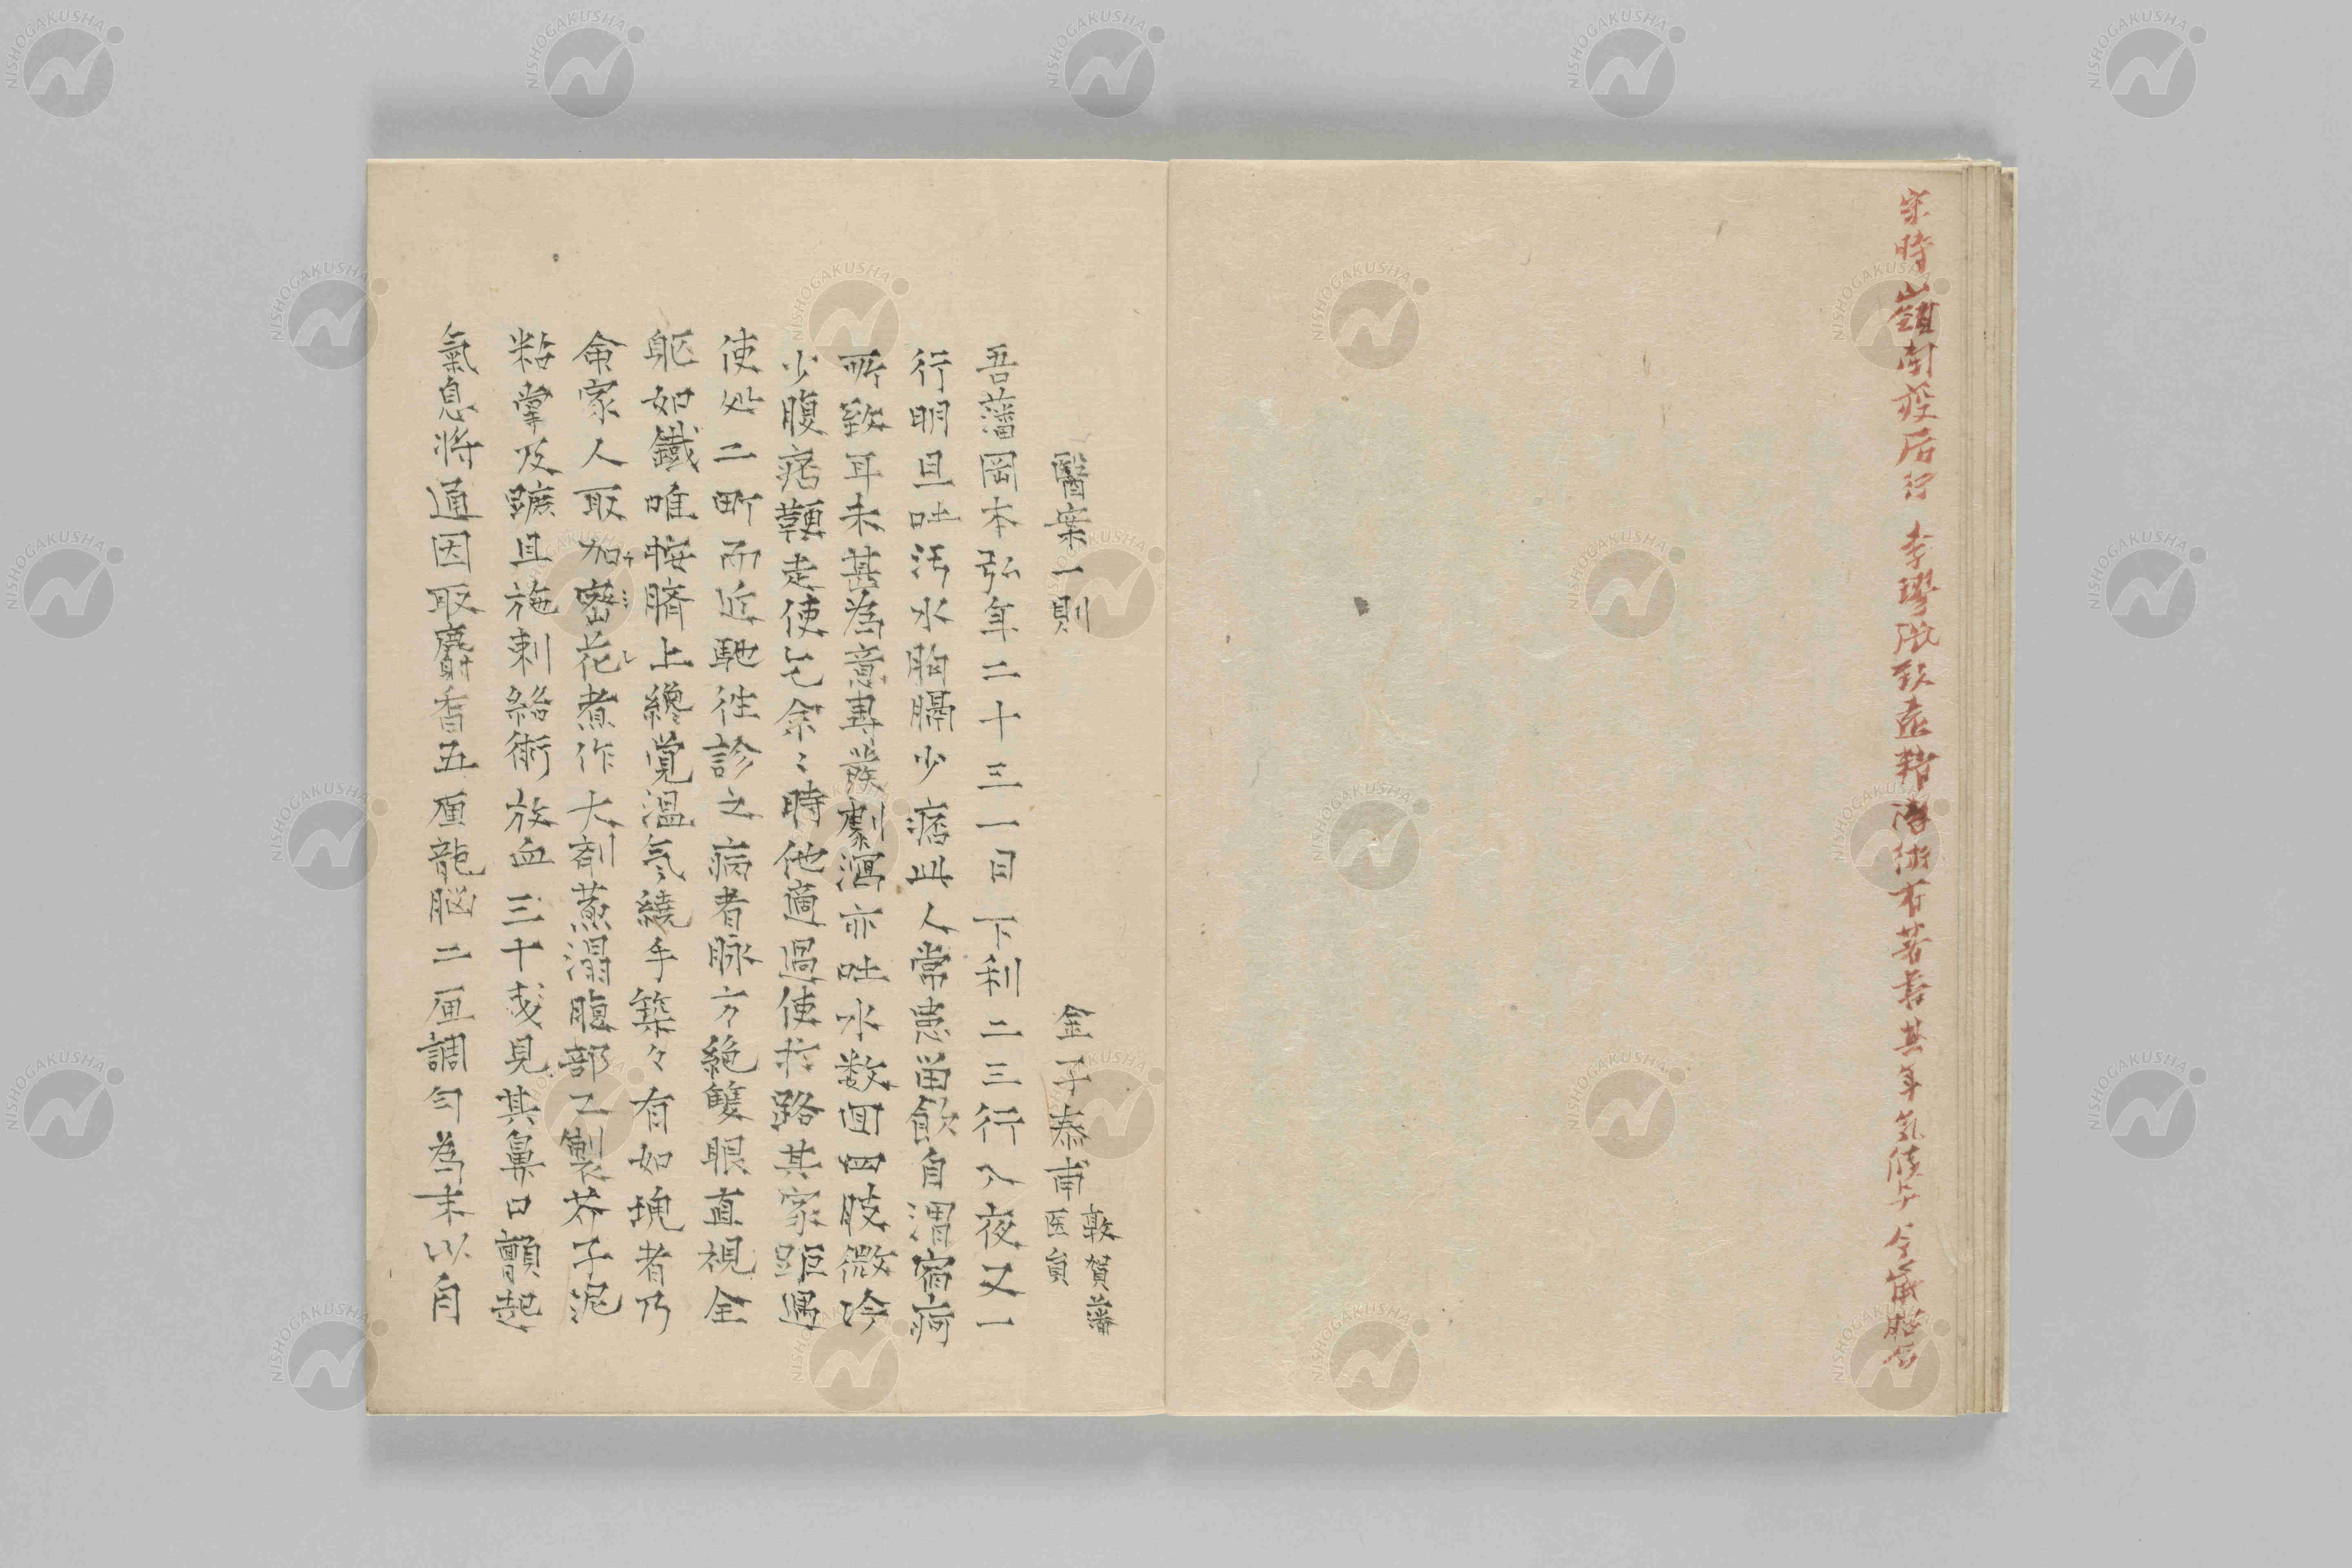 宋時嶺南疫后行 李璆張致遠精醫術有著書其年気候与今歳略同
醫案一則
金子泰甫 敦賀藩医員
吾藩岡本弥年二十三一日下利二三行入夜又一
行明旦吐汚水胸膈少痞此人常患留飲自謂宿痾
所致耳未甚為意尋發劇瀉亦吐水数回四肢微冷
少腹痞鞕走使乞余〻時他適過使於路其家距遇
使処二町而近馳往診之病者脉方絶雙眼直視全
躯如鐵唯按臍上纔覚温気繞手築々有如塊者乃
命家人取加密花煮作大剤蒸溻腹部又製芥子泥
粘掌及蹠且施刺絡術放血三十戔見其鼻口顫起
氣息将通因取麝香五厘龍脳二厘調勻為末以自
カ
ミ
レ
NISHOGAKUSHA